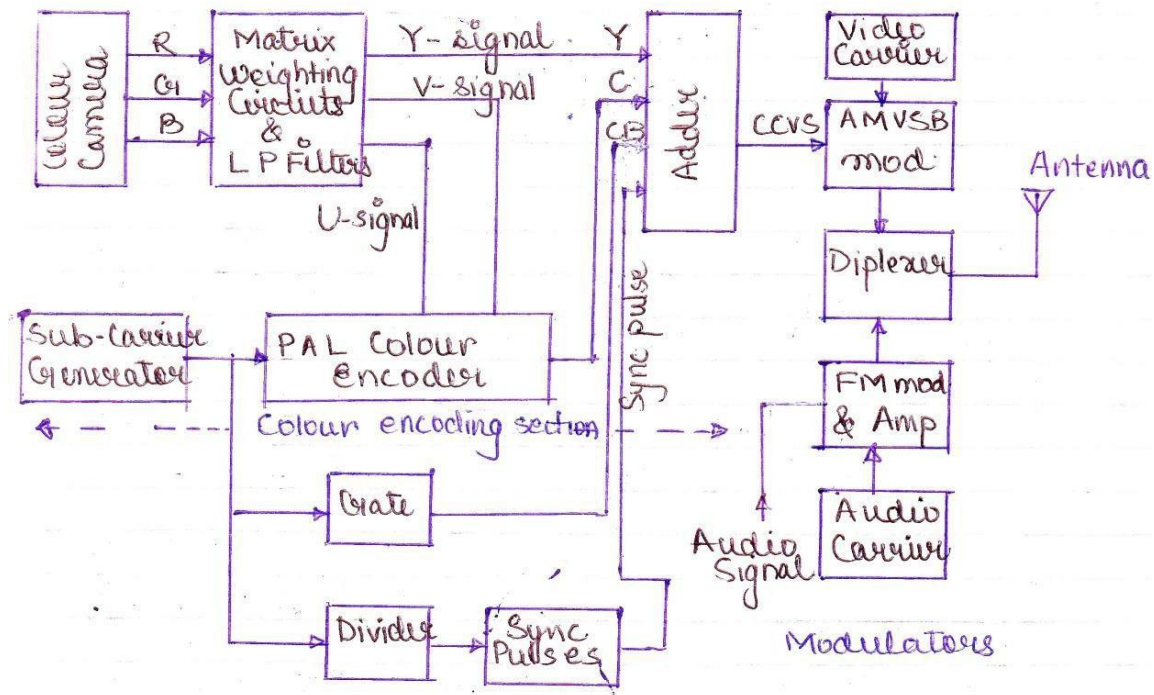 Colour
Camera
R
G
B
Matrix
Weighting
Circuits
&
LP Filters
Y-signal
V-signal
U-signal
Y
C
Adder
CCVS
Video
Carrier
AMVSB
mod
Diplexer
Antenna
Sub-Carrier
Generator
PAL Colour
encoder
Colour encoding section
Sync pulse
FM mod
& Amp
Gate
Audio
Signal
Audio
Carrier
Divider
Sync
Pulses
Modulators